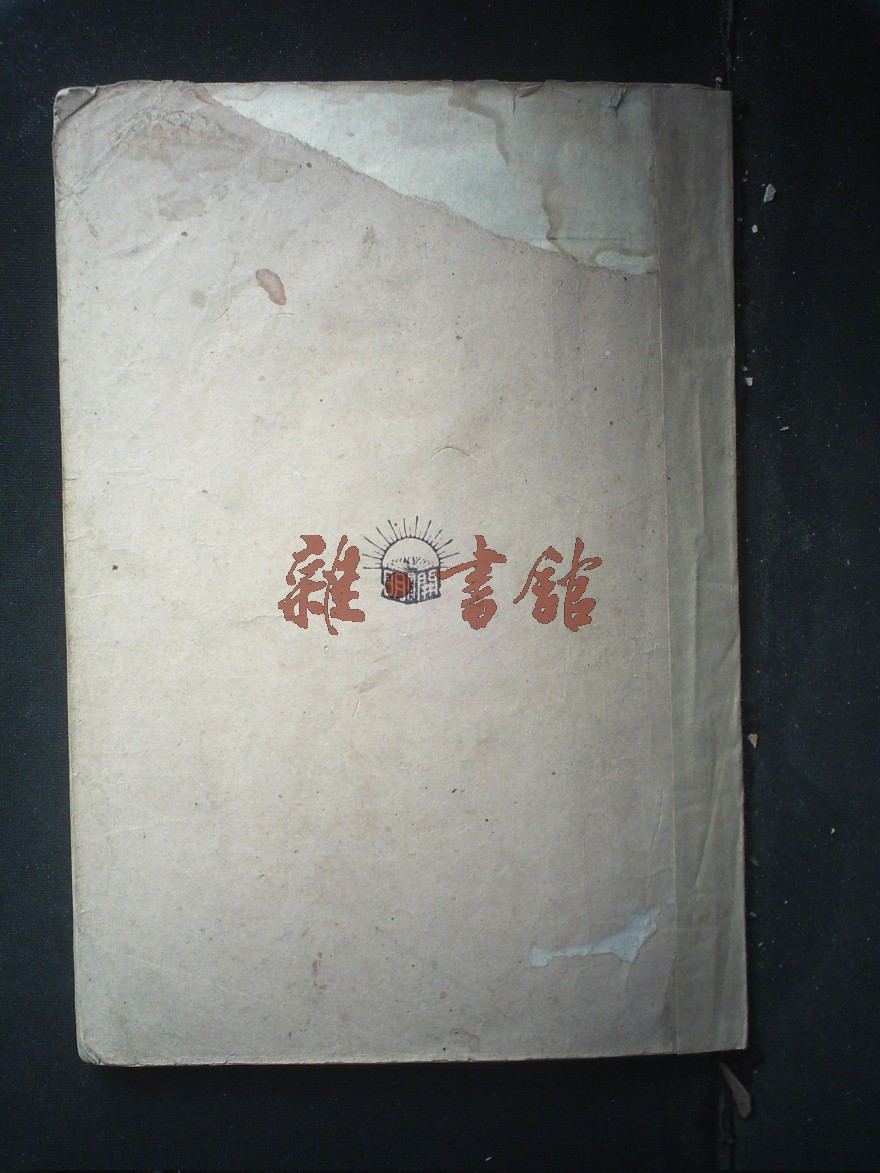 雜書館
開明